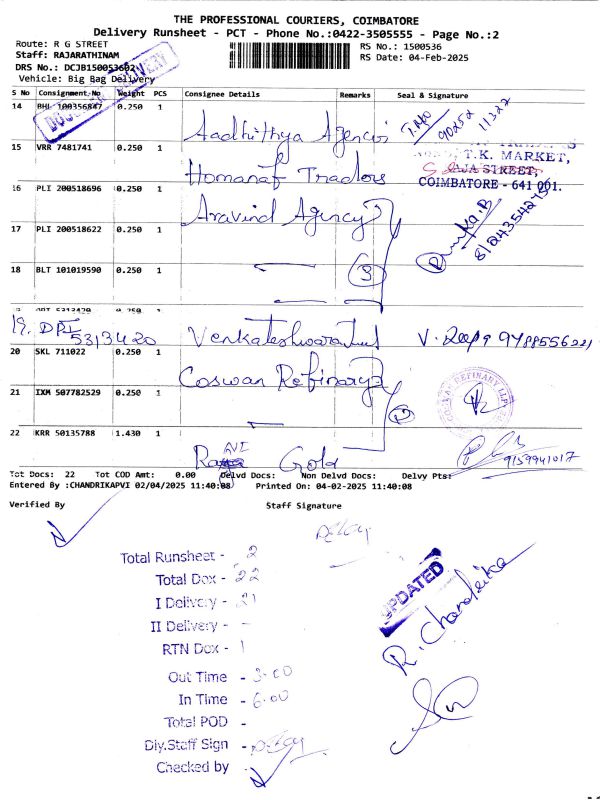 THE PROFESSIONAL COURIERS, COIMBATORE
Delivery Runsheet - PCT - Phone No.:0422-3505555 - Page No.:2
Route: R G STREET
Staff: RAJARATHINAM
DRS No.: DCJB150053602
Vehicle: Big Bag Delivery
RS No.: 1500536
RS Date: 04-Feb-2025
S No Consignment No Weight PCS Consignee Details Remarks Seal & Signature
14 BHL 100356847 0.250 1 Aadhithya Agency
90252 11322
15 VRR 7481741 0.250 1 Homanaf Traders
T.K. MARKET,
RAJA STREET,
COIMBATORE - 641 001.
16 PLI 200518696 0.250 1 Aravind Agency
17 PLI 200518622 0.250 1
18 BLT 101019590 0.250 1 3
19. DPI 5313420 Venkateshwara V. Deepa
20 SKL 711022 0.250 1 Coswan Refinary
21 IXM 507782529 0.250 1
22 KRR 50135788 1.430 1 RAVI Gold
9159941017
Tot Docs: 22 Tot COD Amt: 0.00 Delvd Docs: Non Delvd Docs: Delvy Pts:
Entered By :CHANDRIKAPVI 02/04/2025 11:40:08 Printed On: 04-02-2025 11:40:08
Verified By Staff Signature
Total Runsheet - 2
Total Dox - 22
I Delivery - 21
II Delivery -
RTN Dox - 1
Out Time - 3.00
In Time - 6.00
Total POD -
Dly.Staff Sign -
Checked by
UPDATED
R. Chandrika